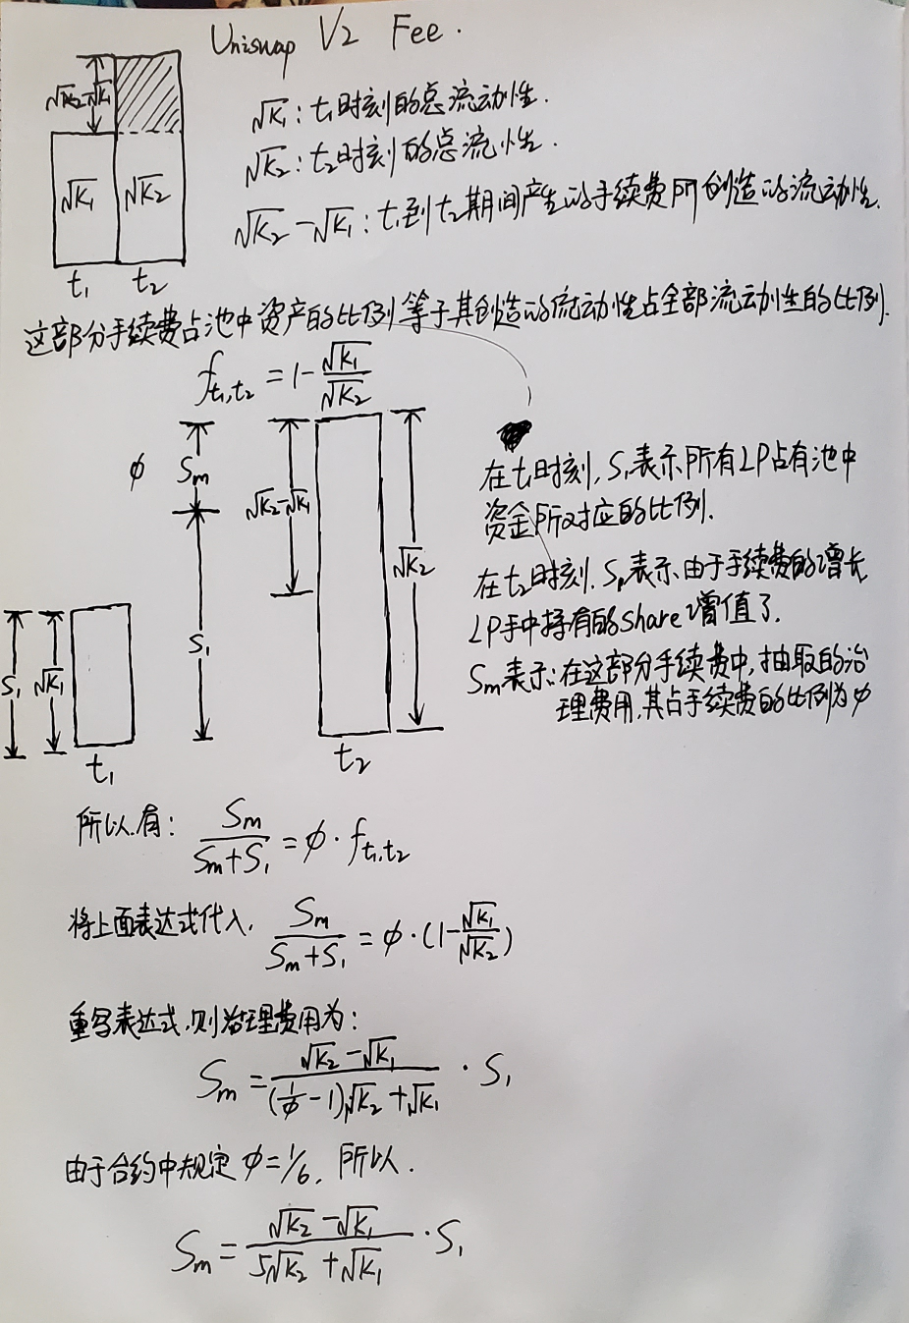 Uniswap V2 Fee.
√K₂-√K₁
√K₁
√K₂
t₁
t₂
√K₁: t₁时刻的总流动性.
√K₂: t₂时刻的总流性.
√K₂-√K₁: t₁到t₂期间产生的手续费所创造的流动性.
这部分手续费占池中资产的比例等于其创造的流动性占全部流动性的比例.
f_{t₁,t₂} = 1 - √K₁/√K₂
φ
Sm
S₁
√K₂-√K₁
√K₂
t₂
S₁
√K₁
t₁
在t₁时刻, S₁表示所有LP占有池中
资金所对应的比例.
在t₂时刻. S₁表示由于手续费的增长
LP手中持有的share增值了.
Sm表示: 在这部分手续费中, 抽取的治
理费用, 其占手续费的比例为φ
所以有: Sm/(Sm+S₁) = φ · f_{t₁,t₂}
将上面表达式代入. Sm/(Sm+S₁) = φ · (1-√K₁/√K₂)
重写表达式, 则治理费用为:
Sm = (√K₂-√K₁)/((1/φ-1)√K₂+√K₁) · S₁
由于合约中规定 φ=1/6, 所以.
Sm = (√K₂-√K₁)/(5√K₂+√K₁) · S₁